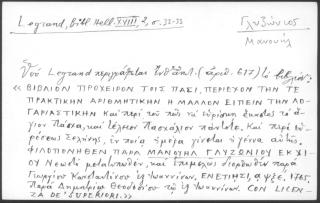 Legrand, Bibl. Hell. XVIII, 2, σ. 32-33
Γλυζώνιος
Μανουήλ
Legrand περιγράφεται (ἀριθ. 617) βιβλίον:
«ΒΙΒΛΙΟΝ ΠΡΟΧΕΙΡΟΝ ΤΟΙΣ ΠΑΣΙ, ΠΕΡΙΕΧΟΝ ΤΗΝ ΤΕ
ΠΡΑΚΤΙΚΗΝ ΑΡΙΘΜΗΤΙΚΗΝ Η ΜΑΛΛΟΝ ΕΙΠΕΙΝ ΤΗΝ ΛΟ-
ΓΑΡΙΑΣΤΙΚΗΝ καὶ περὶ τοῦ πῶς νὰ εὑρίσκῃ ἕκαστος τὸ ἅ-
γιον Πάσχα, καὶ τέλειον Πασχάλιον πάντοτε. Καὶ περὶ εὑ-
ρέσεως Σελήνης, ἐν ποίᾳ ἡμέρᾳ γίνεται ἡ γέννα αὐτῆς.
ΦΙΛΟΠΟΝΗΘΕΝ ΠΑΡΑ ΜΑΝΟΥΗΛ ΓΛΥΖΩΝΙΟΥ ΕΚ ΧΙ
ΟΥ Νεωστὶ μετατυπωθέν, καὶ ἐπιμελῶς διορθωθὲν παρὰ
Γεωργίου Κωνσταντίνου ἐξ Ἰωαννίνων. ΕΝΕΤΙΗΣΙ, 1765.
Παρὰ Δημητρίῳ Θεοδοσίου τῷ ἐξ Ἰωαννίνων. CON LICEN-
ZA DE' SUPERIORI.»